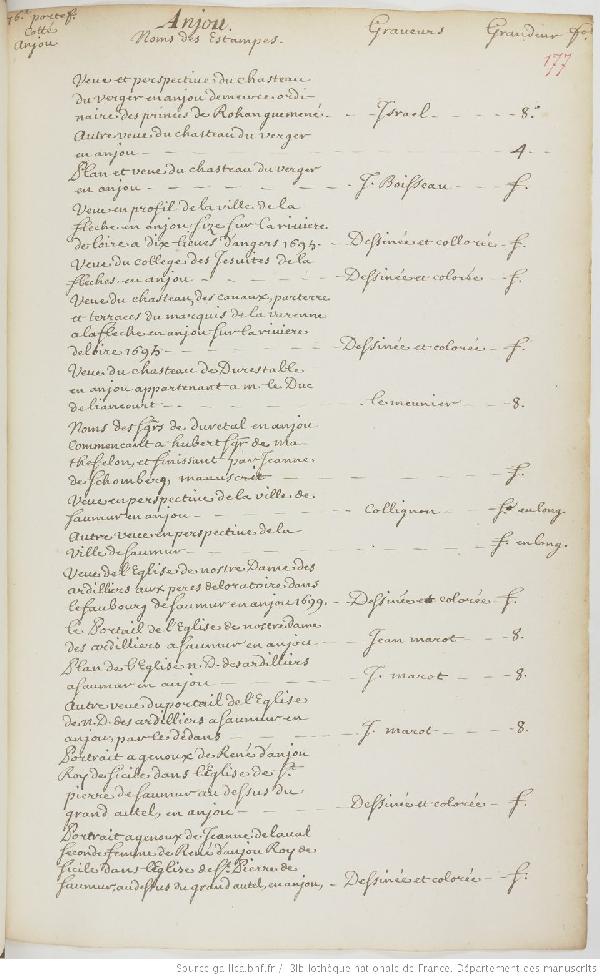 76.e portef.
Cotté
Anjou
Anjou.
Noms des Estampes. Graveurs Grandeur fol
177
Veue et perspective du chasteau
du verger en anjou demeure ordi-
naire des princes de Rohanguemené - Israel - 8.o
Autre veue du chasteau du verger
en anjou - 4
Plan et veue du chasteau du verger
en anjou - J. Boisseau - f.
Veue en profil de la ville de la
fleche en anjou size sur la riviere
de loire a dix lieues d'angers 1695 - Dessinée et collorée - f.
Veue du college des Jesuites de la
fleches en anjou - Dessinée et colorée - f.
Veue du chasteau, des canaux, parterre
et terraces du marquis de la varenne
a la fleche en anjou sur la riviere
de loire 1695 - Dessinée et colorée - f.
Veue du chasteau de Durestable
en anjou appartenant a m. le Duc
de liancourt - le meunier - 8.
Noms des sgrs de duretal en anjou
commencant a hubert sgr de ma
thefelon, et finissant par Jeanne
de schomberg, manuscret - f.
Veue en perspective de la ville de
saumur en anjou - Collignon - f. en long.
Autre veue en perspective de la
ville de saumur - f. en long.
Veue de l'Eglise de nostre Dame des
ardilliers aux peres de loratoire dans
le faubourg de saumur en anjou 1699. - Dessinée et colorée - f.
le Portail de l'Eglise de nostre dame
des ardilliers a saumur en anjou - Jean marot - 8.
Plan de l'Eglise n. D. des ardilliers
a saumur en anjou - J. marot - 8.
Autre veue du portail de l'Eglise
de n. D. des ardilliers a saumur en
anjou, par le dedans - J. marot - 8.
Portrait a genoux de René d'anjou
Roy de sicile dans l'Eglise de St.
pierre de saumur au dessus du
grand autel, en anjou - Dessinée et colorée - f.
Portrait a genoux de Jeanne de laval
seconde femme de René d'anjou Roy de
sicile dans l'Eglise de St. Pierre de
saumur, au dessus du grand autel, en anjou, - Dessinée et colorée - f.
Source gallica.bnf.fr / Bibliothèque nationale de France. Département des manuscrits